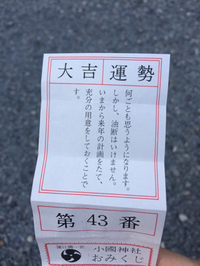 大吉 運勢
何ごとも思うようになります。
しかし、油断はいけません。
いまから来年の計画をたて、
充分の用意をしておくことで
す。
第43番
小國神社
おみくじ